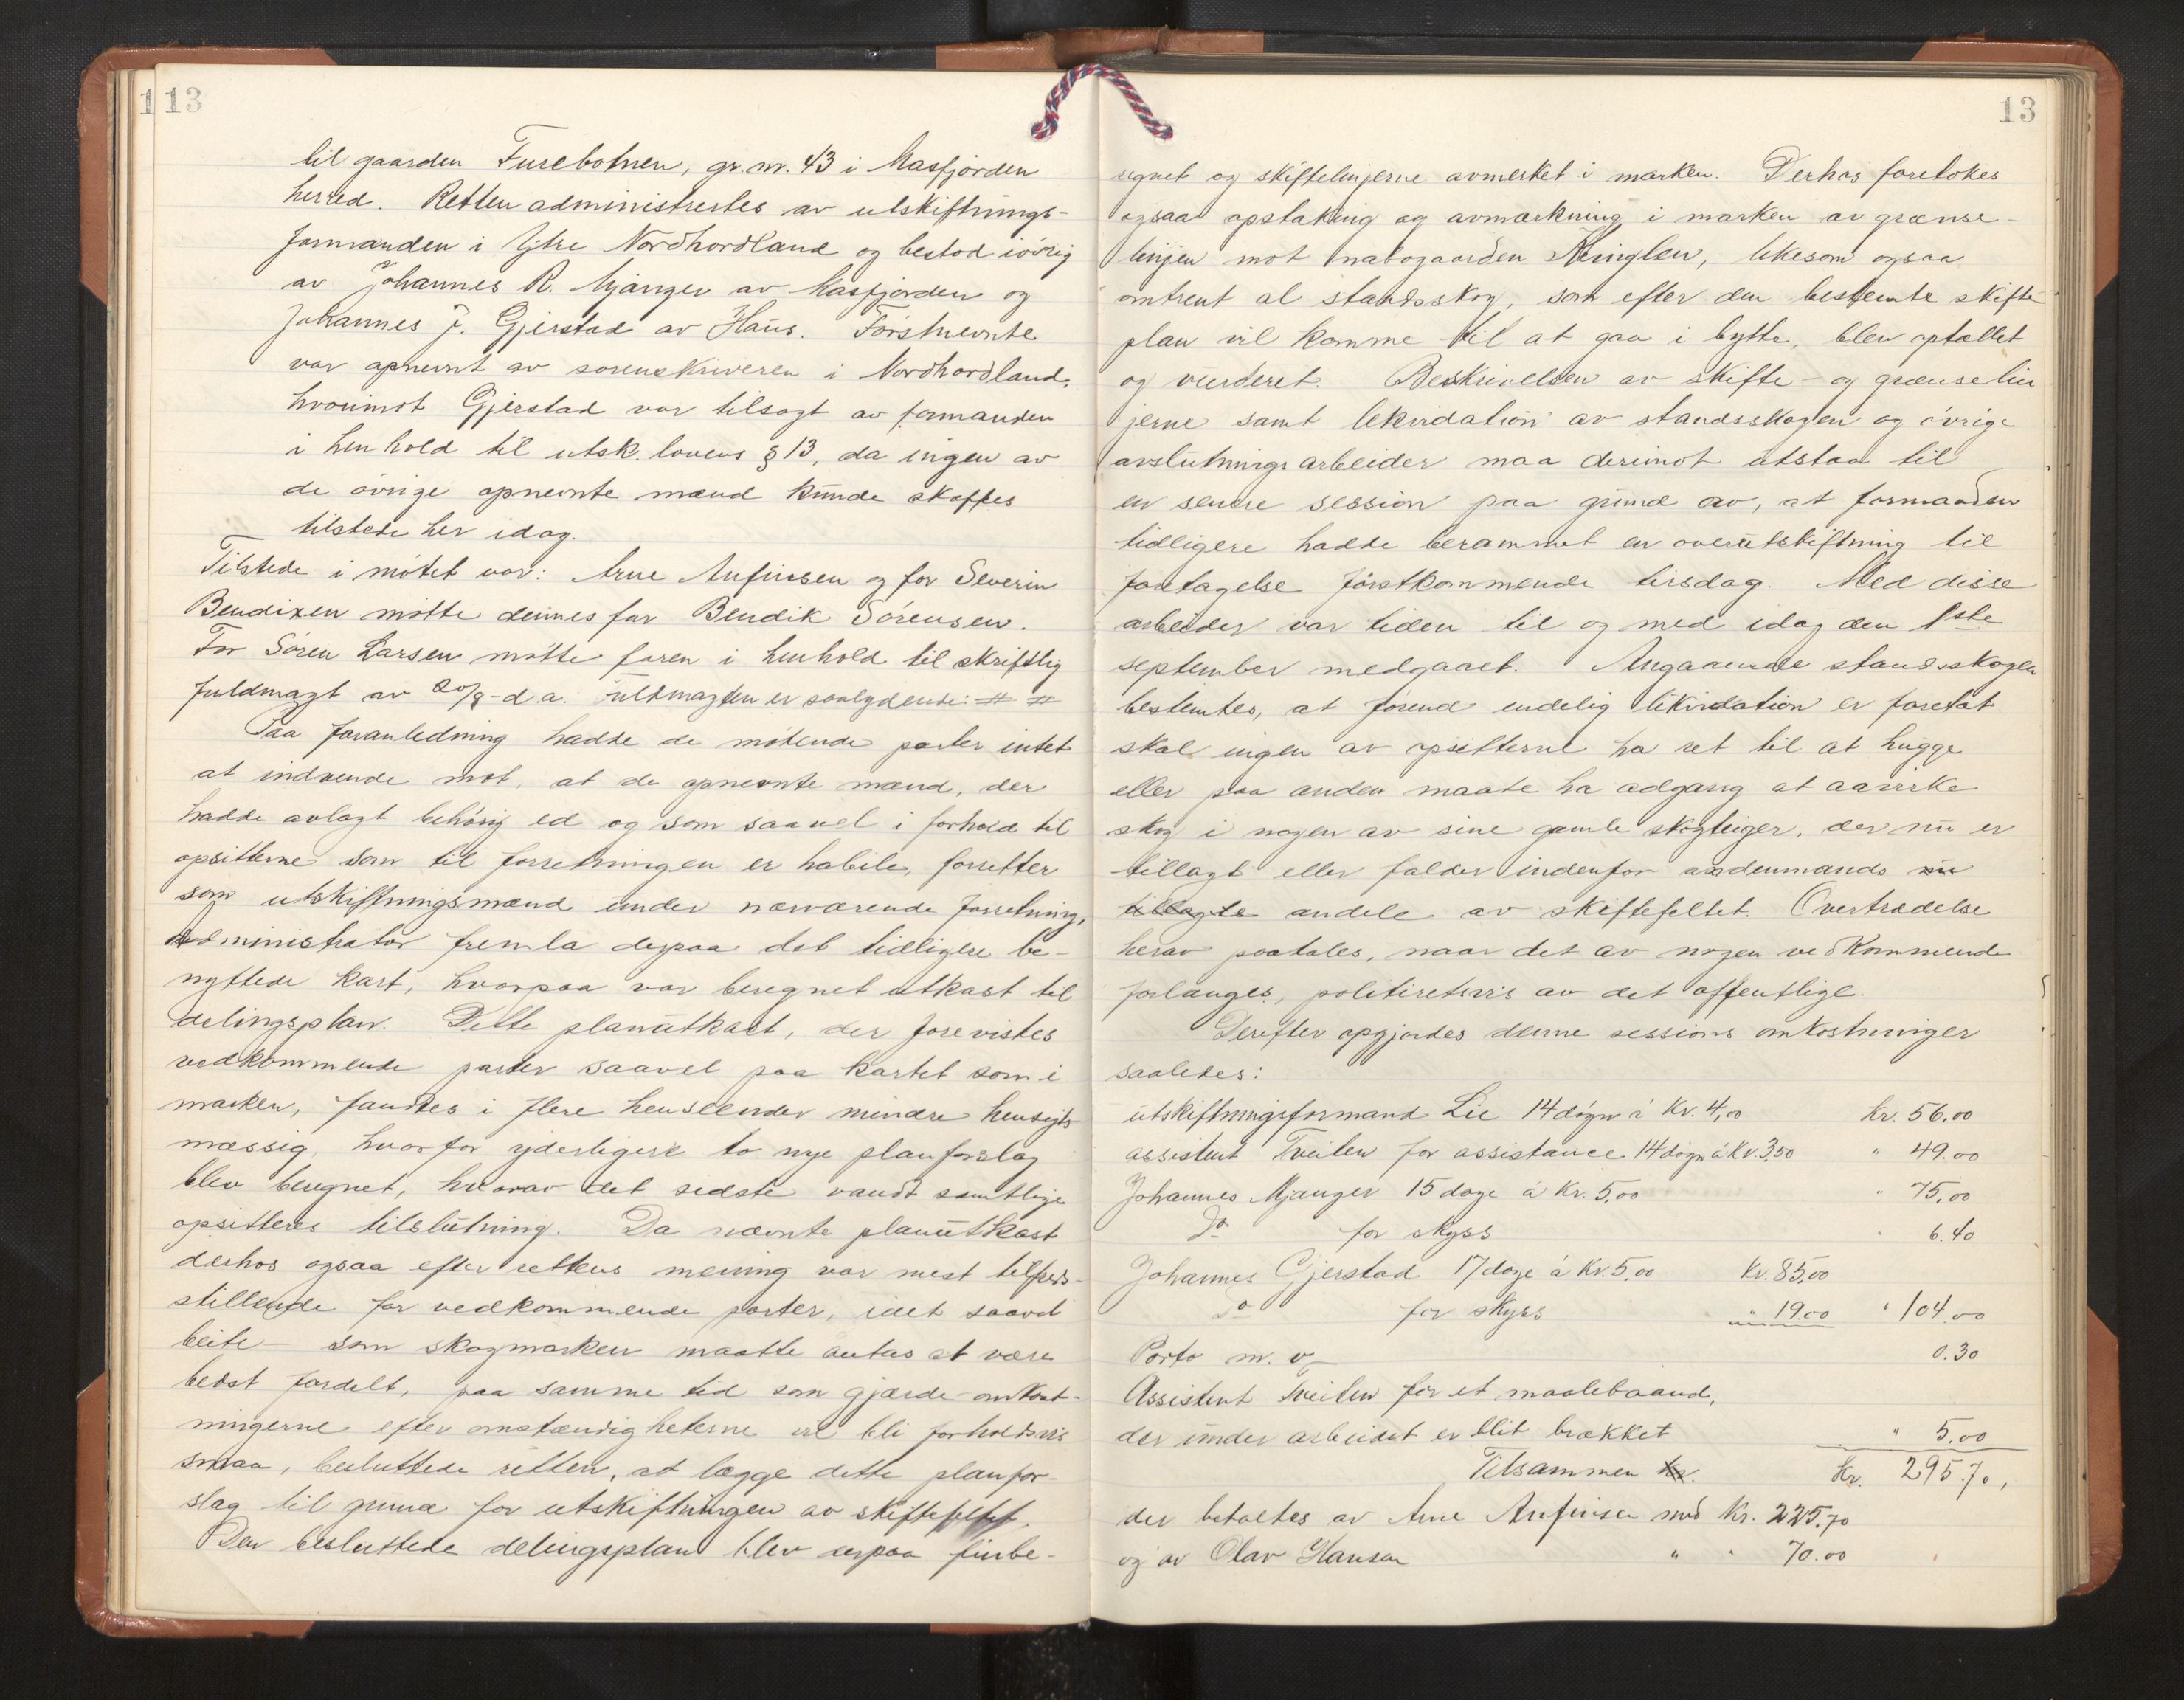 113
til gaarden Furebotnen, gr. nr. 43 i Masfjorden
herred. Retten administrertes av utskiftnings-
formanden i Ytre Nordhordland og bestod iövrig
av Johannes R. Mjanger av Masfjorden og
Johannes J. Gjerstad av Haus. Förstnevnte
var opnevnt av sorenskriveren i Nordhordland,
hvorimot Gjerstad var tilsagt av formanden
i henhold til utsk. lovens § 13, da ingen av
de övrige opnevnte mænd kunde skaffes
tilstede her idag.
Tilstede i mötet var: Arne Anfinsen og for Severin
Bendixen mötte dennes far Bendik Sörensen.
For Sören Larsen mötte faren i henhold til skriftlig
fuldmagt av 20/8 - d.a. Fuldmagten er saalydende: # #
Paa foranledning hadde de mötende parter intet
at indvende mot, at de opnevnte mænd, der
hadde avlagt behörig ed og som saavel i forhold til
opsitterne som til forretningen er habile, forretter
som utskiftningsmænd under nærværende forretning.
Administrator fremla derpaa det tidligere be-
nyttede kart, hvorpaa var beregnet utkast til
delingsplan. Dette planutkast, der forevistes
vedkommende parter saavel paa kartet som i
marken, fandtes i flere henseender mindre hensigts-
mæssig, hvorfor yderligere to nye planforslag
blev beregnet, hvorav det sidste vandt samtlige
opsitteres tilslutning. Da nævnte planutkast
derhos ogsaa efter rettens mening var mest tilfreds-
stillende for vedkommende parter, idet saavel
beite- som skogmarken maatte antas at være
bedst fordelt, paa samme tid som gjærde-omkost-
ningerne efter omstændigheterne vil bli forholdsvis
smaa, besluttede retten, at lægge dette planfor-
slag til grund for utskiftningen av skiftefeltet.
Den besluttede delingsplan blev derpaa finbe-
13
regnet og skiftelinjerne avmerket i marken. Derhos foretokes
ogsaa opstakning og avmærkning i marken av grænse-
linjen mot nabogaarden Kringlen, likesom ogsaa
omtrent al standsskog, som efter den bestemte skifte-
plan vil komme til at gaa i bytte, blev optællet
og vurderet. Beskrivelsen av skifte- og grænselin
jerne samt likvidation av standsskogen og övrige
avslutningsarbeider maa derimot utstaa til
en senere session paa grund av, at formanden
tidligere hadde berammet en overutskiftning til
foretagelse förstkommende tirsdag. Med disse
arbeider var tiden til og med idag den 1ste
september medgaaet. Angaaende standsskogen
bestemtes, at förend endelig likvidation er foretat
skal ingen av opsitterne ha ret til at hugge
eller paa anden maate ha adgang at aavirke
skog i nogen av sine gamle skogteiger, der nu er
tillagt eller falder indenfor andenmands nu
tillagte andele av skiftefeltet. Overtrædelse
herav paatales, naar det av nogen vedkommende
forlanges, politiretsvis av det offentlige.
Derefter opgjordes denne sessions omkostninger
saaledes:
utskiftningsformand Lie 14 dögn á Kr. 4,00 Kr. 56.00
assistent Tveiten for assistance 14 dögn á Kr. 3,50 " 49.00
Johannes Mjanger 15 dage á Kr. 5,00 " 75,00
Do for skyss " 6.40
Johannes Gjerstad 17 dage á Kr. 5,00 Kr. 85,00
Do for skyss " 19.00 " 104.00
Porto m. v. 0.30
Assistent Tveiten for et maalebaand,
der under arbeidet er blit brækket " 5.00
Tilsammen kr. Kr. 295.70,
der betaltes av Arne Anfinsen med Kr. 225.70
og av Olav Hansen " " 70.00